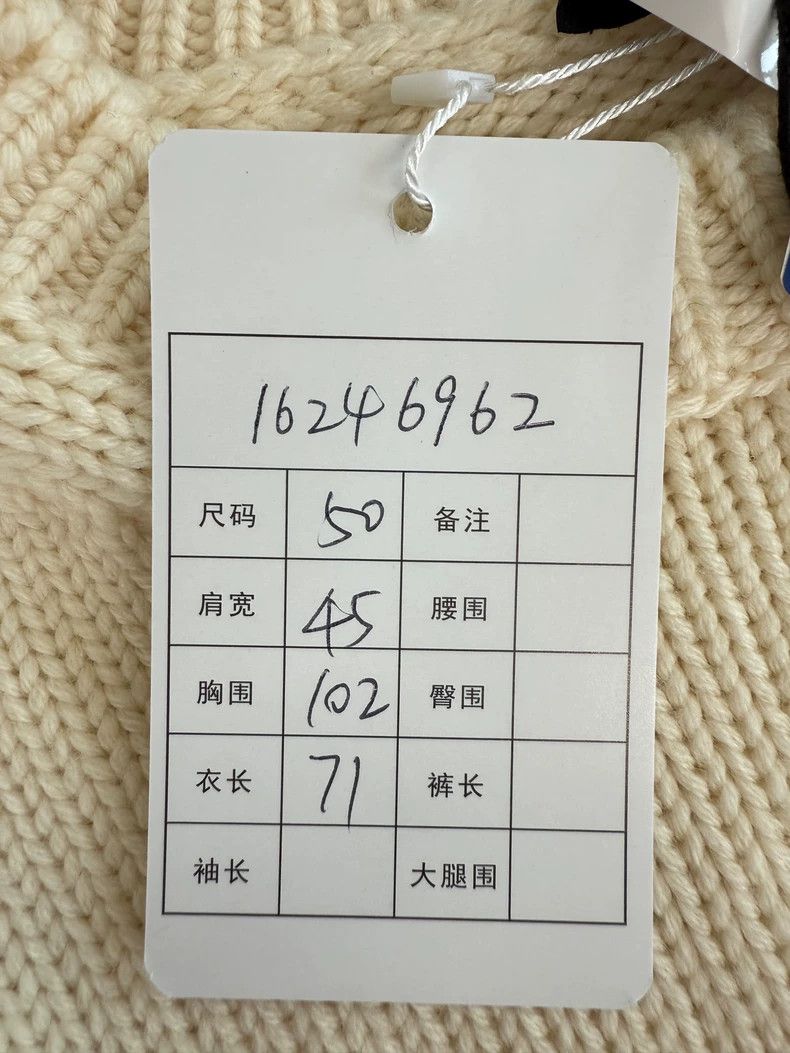 16246962
尺码 50 备注
肩宽 45 腰围
胸围 102 臀围
衣长 71 裤长
袖长 大腿围